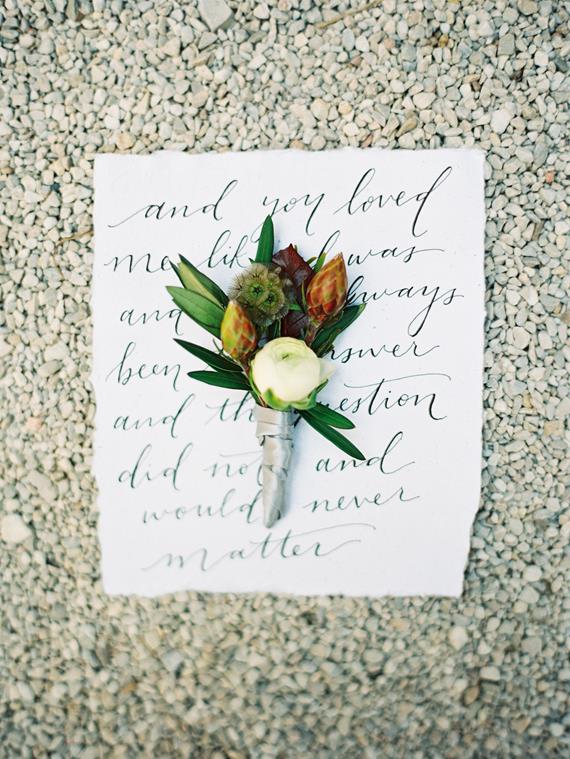 and you loved
me like I was
and always
been answer
and the question
did not and
would never
matter